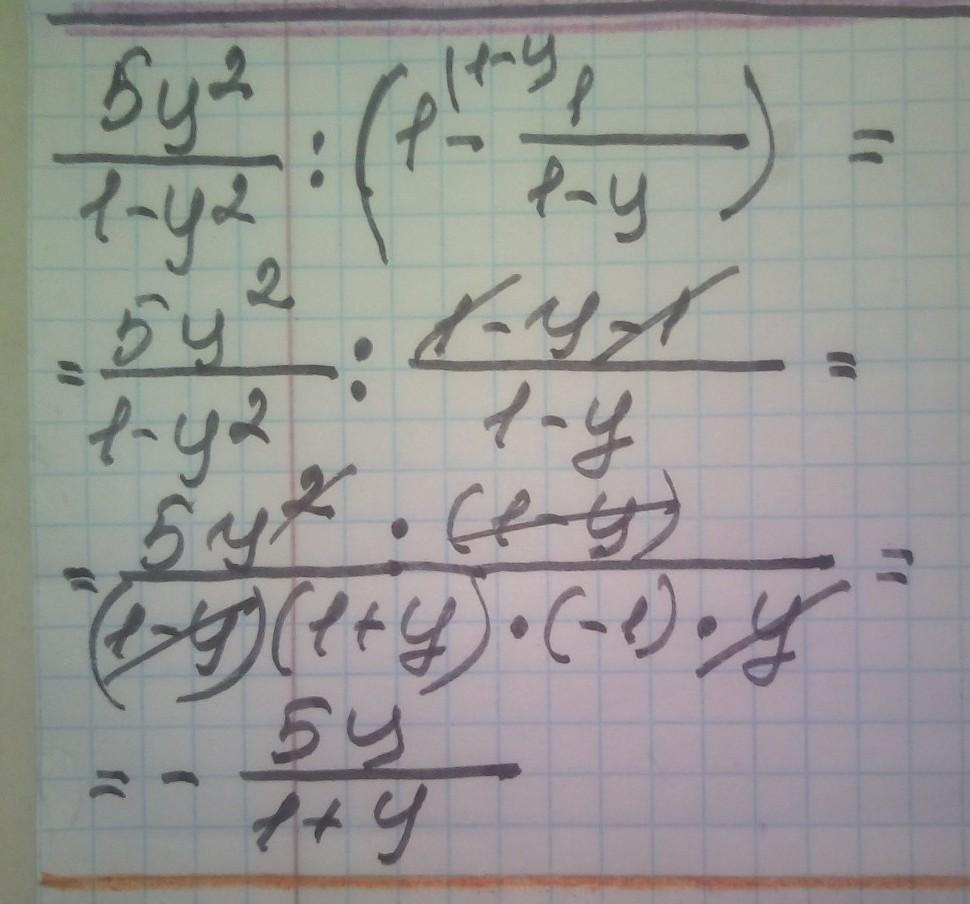 5y²/(1-y²) : (1^{|1-y} - 1/(1-y)) =
= 5y²/(1-y²) : (1-y-1)/(1-y) =
= 5y² · (1-y)/((1-y)(1+y) · (-1) · y) =
= - 5y/(1+y)